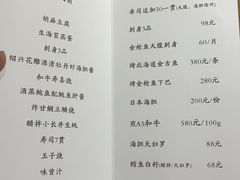 胡麻豆腐
生海苔蒸蛋
刺身3品
绍兴花雕酒渍牡丹虾海胆酱
和牛寿喜烧
酒蒸鲍鱼配鲍鱼肝酱
炸甘鲷立鳞烧
醋拌小长井生蚝
寿司7贯
玉子烧
味曾汁
寿司追加30一贯(大腹、海胆除外)
刺身3品 98元
金枪鱼大腹刺身 60/片
烤北海道金吉鱼 380元/条
烤金枪鱼下巴 280元
日本海胆 200元/份
煎A5和牛 580元/100g
海胆天妇罗 88元
鳕鱼白籽(醋拌/天妇罗) 68元